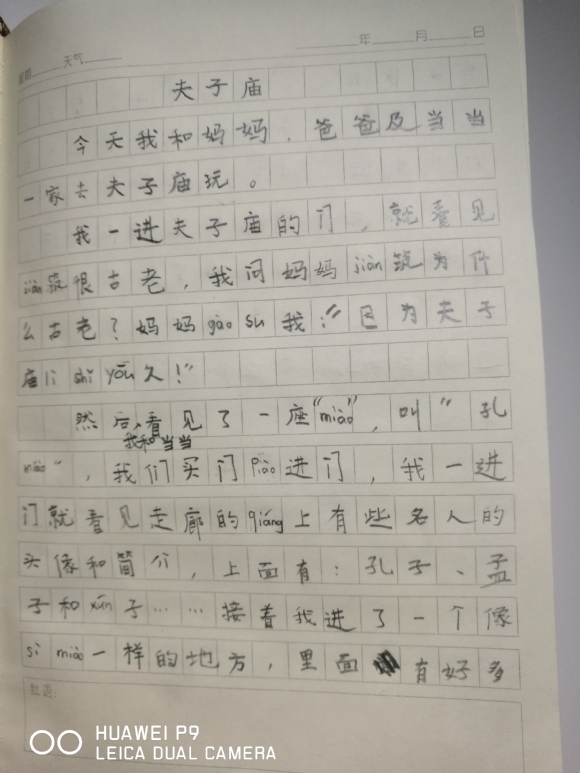 星期 天气 年 月 日
夫子庙
今天我和妈妈、爸爸及当当
一家去夫子庙玩。
我一进夫子庙的门，就看见
jiàn筑很古老，我问妈妈jiàn筑为什
么古老？妈妈gào su我："因为夫子
庙lì shǐ yōu久！"
然后，看见了一座"miào"，叫"孔
我和当当
miào"，我们买门piào进门，我一进
门就看见走廊的qiáng上有些名人的
头像和简介，上面有：孔子、孟
子和xún子……接着我进了一个像
sì miào一样的地方，里面有好多
批语：
HUAWEI P9
LEICA DUAL CAMERA